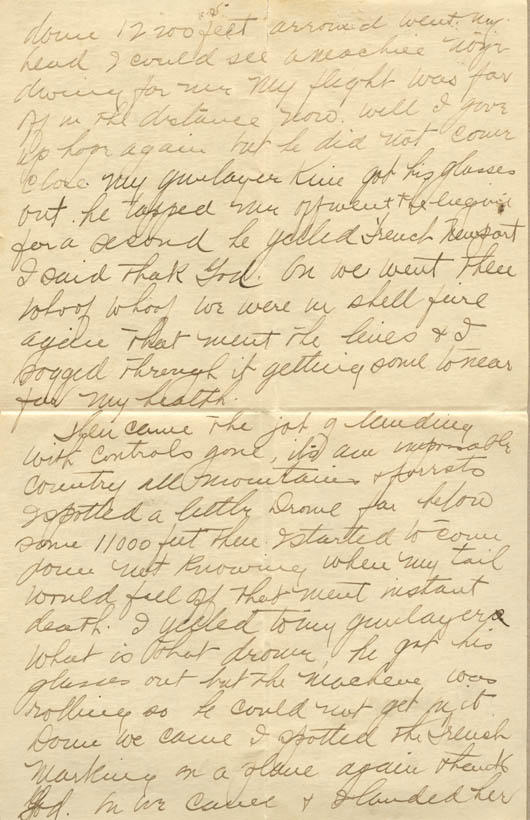 down 12200 feet arround went my
head I could see a machine now
diving for me My flight was far
off in the distance now. will I give
up hope again but he did not come
close. My gunlayer King got his glasses
out. he tapped me off went the
for a second he yelled French Newport
I said thak God. On we went then
whoof whoof we were in shell fire
again that ment the lines & I
zogged through it getting some to near
for my health.
Then came the job of landing
with controls gone, its an impossable
country all mountains & forrests
I spotted a little Drome far below
some 11000 feet then I started to come
down not knowing when my tail
would fall off that ment instant
death. I yelled to my gunlayer
what is that drome, he got his
glasses out but the machine was
rolling so he could not get it
Down we came I spotted the French
marking on a plane again thank
God. on we came & I landed her